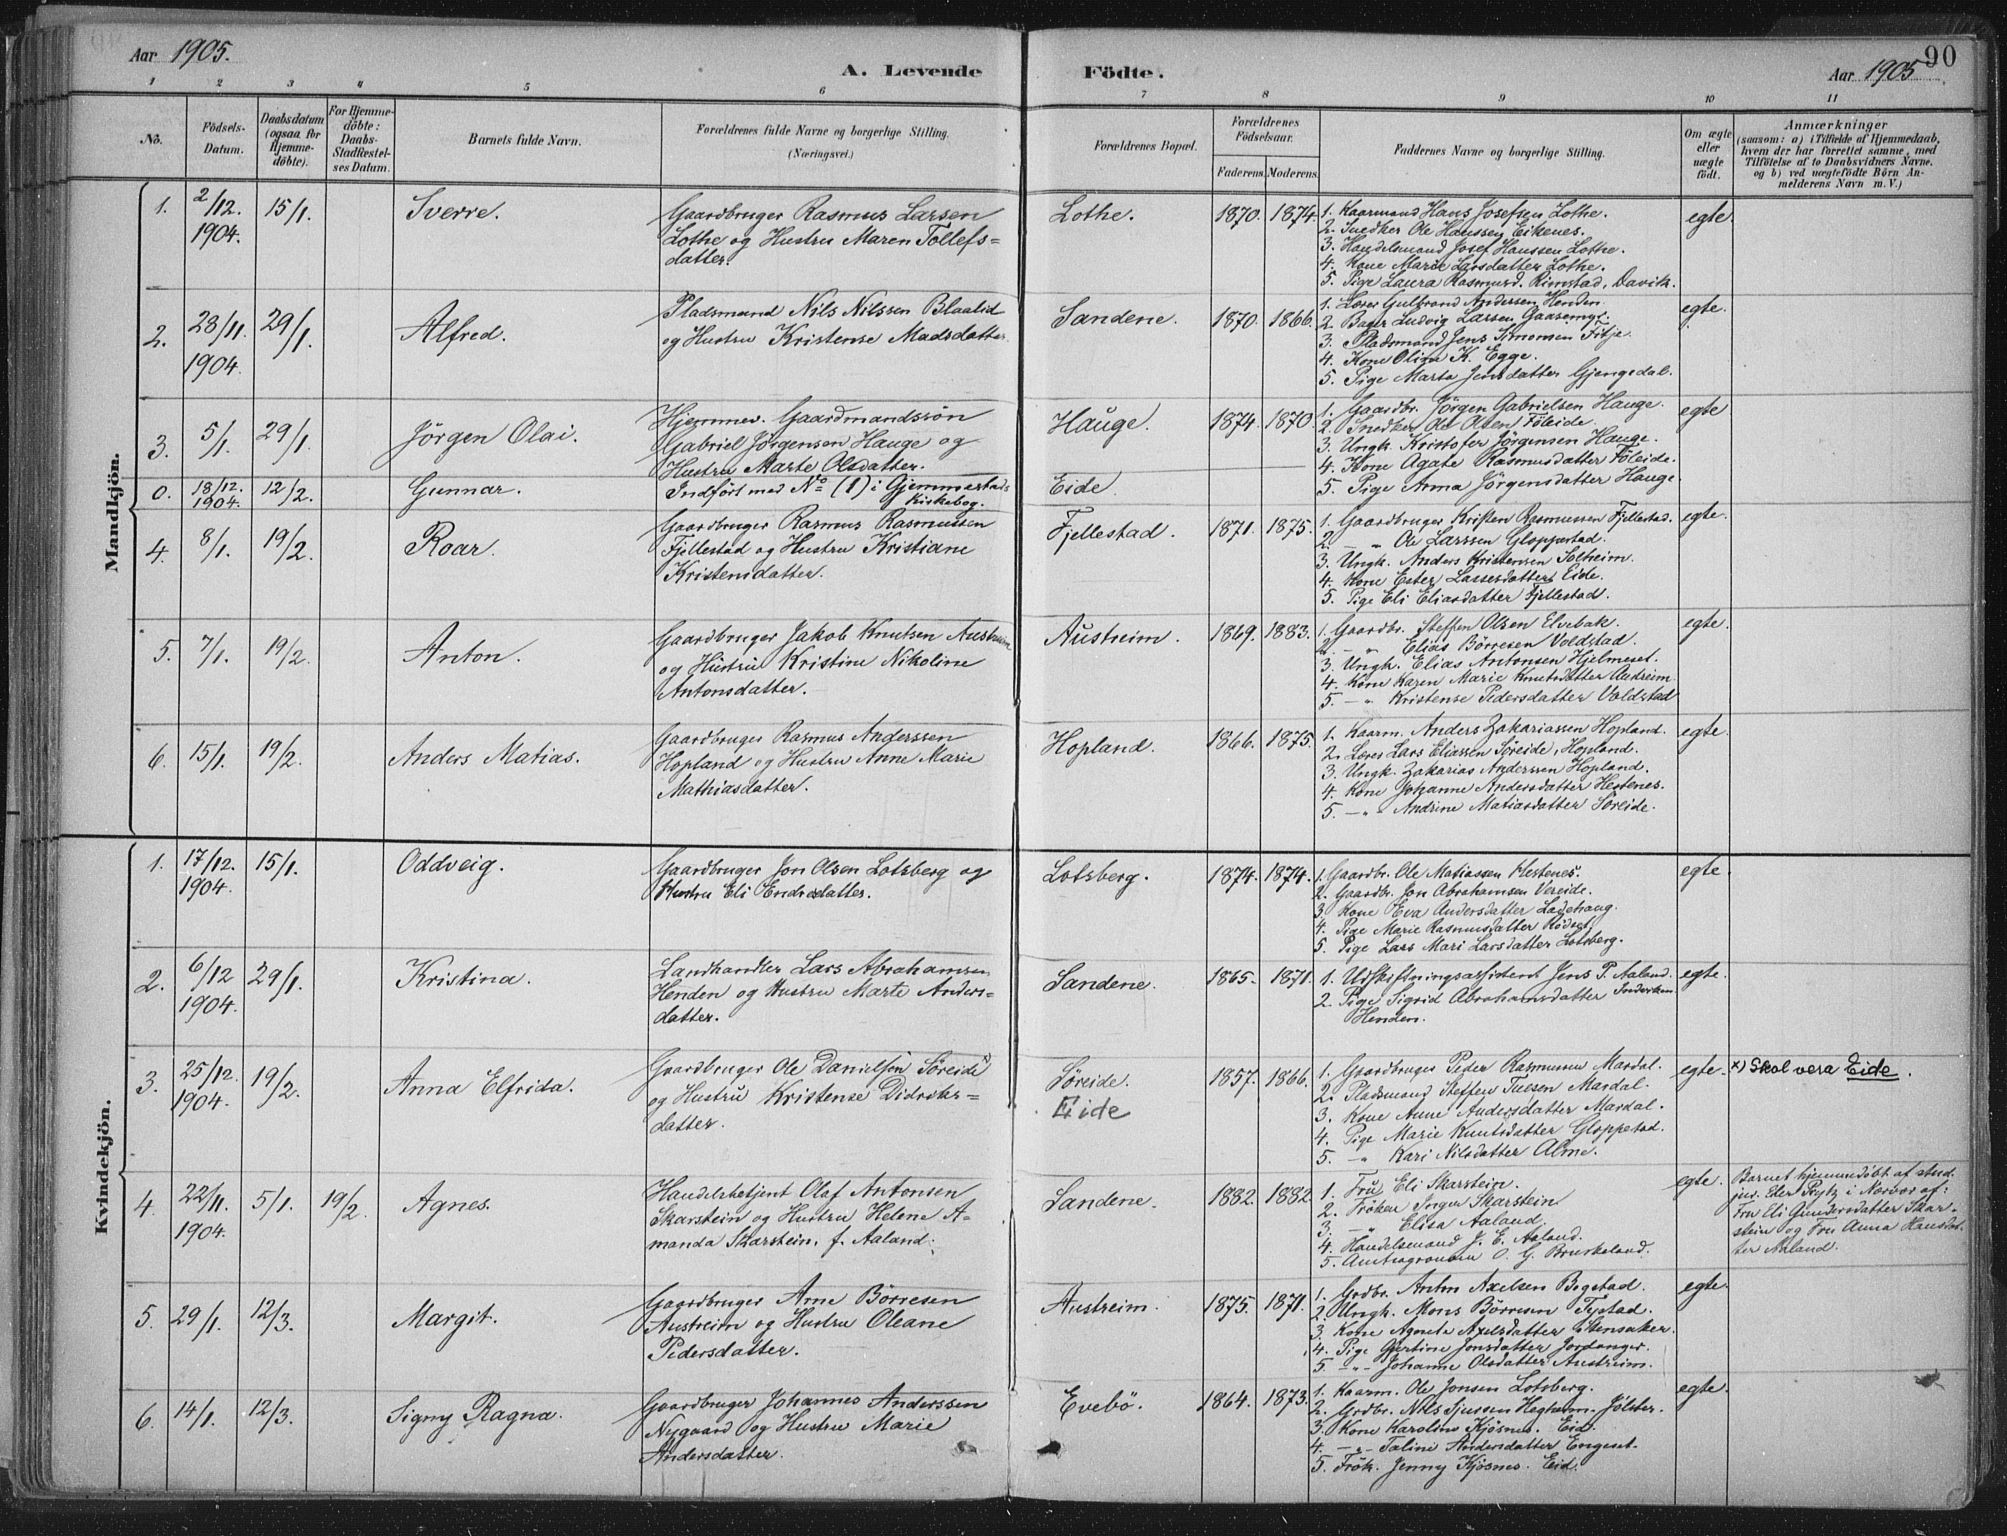 Aar 1905.
A. Levende Födte.
Aar 1905.
90
1 2 3 4 5 6 7 8 9 10 11
No.
Födsels-Datum.
Daabsdatum (ogsaa for Hjemme-döbte).
For Hjemme-döbte: Daabs-Stadfæstel-ses Datum.
Barnets fulde Navn.
Forældrenes fulde Navne og borgerlige Stilling.
(Næringsvei.)
Forældrenes Bopæl.
Forældrenes Födselsaar.
Faderens. Moderens.
Faddernes Navne og borgerlige Stilling.
Om ægte eller uægte födt.
Anmærkninger
(saasom: a) i Tilfælde af Hjemmedaab, hvem der har forrettet samme, med Tilföielse af to Daabsvidners Navne. og b) ved uægtefödte Börn An-melderens Navn m. V.)
Mandkjön.
1. 2/12. 1904. 15/1. Sverre.
Gaardbruger Rasmus Larsen
Lothe og Hustru Maren Tollefs=
datter.
Lothe. 1870. 1874.
1. Kaarmand Hans Josefsen Lothe.
2. Snedker Ole Hanssen Eikenes.
3. Handelsmand Josef Hanssen Lothe.
4. Kone Marie Larsdatter Lothe.
5. Pige Laura Rasmusd. Rimstad, Davik.
egte
2. 23/11. 1904. 29/1. Alfred.
Pladsmand Nils Nilssen Blaalid
og Hustru Kristense Madsdatter.
Sandene. 1870. 1866.
1. Lærer Gulbrand Andersen Henden
2. Bager Ludvig Larsen Gaasemyr.
3. Pladsmand Jens Simonsen Fitje
4. Kone Oline K. Egge.
5. Pige Marta Jensdatter Gjengedal.
egte.
3. 5/1. 29/1. Jörgen Olai.
Hjemmev. Gaardmandssön
Gabriel Jörgenson Hauge og
Hustru Marte Olsdatter.
Hauge. 1874. 1870.
1. Gaardbr. Jörgen Gabrielsen Hauge.
2. Snedker Ole Olsen Föleide.
3. Ungk. Kristofer Jörgensen Hauge.
4. Kone Agate Rasmusdatter Föleide.
5. Pige Anna Jörgensdatter Hauge.
egte
0. 18/12. 1904. 12/2. Gunnar.
Indfört med No (1) i Gjemmestads
Kirkebog.
Eide.
4. 8/1. 19/2. Roar.
Gaardbruger Rasmus Rasmussen
Fjellestad og Hustru Kristiane
Kristensdatter.
Fjellestad. 1871. 1875.
1. Gaardbruger Kristen Rasmussen Fjellestad.
2. — „ Ole Larssen Gloppestad.
3. Ungk. Anders Kristensen Solheim.
4. Kone Ester Lassesdatter Eide.
5. Pige Eli Eliasdatter Fjellestad.
egte.
5. 7/1. 19/2. Anton.
Gaardbruger Jakob Knutsen Austreim
og Hustru Kristine Nikoline
Antonsdatter.
Austreim. 1869. 1883.
1. Gaardbr. Steffen Olsen Elvebak.
2. — „ Elias Börresen Voldstad.
3. Ungk. Elias Antonsen Hjelmeset.
4. Kone Karen Marie Knutsdatter Austreim
5. — „ Kristense Pedersdatter Voldstad
egte.
6. 15/1. 19/2. Anders Matias.
Gaardbruger Rasmus Anderssen
Hopland og Hustru Anne Marie
Mathiasdatter.
Hopland. 1866. 1875.
1. Kaarm. Anders Zakariassen Hopland.
2. Lærer Lars Eliassen Søreide, Hopland.
3. Ungk. Zakarias Anderssen Hopland.
4. Kone Johanne Andersdatter Hestenes.
5. — „ Andrine Matiasdatter Søreide.
egte.
Kvindekjön.
1. 17/12. 1904. 15/1. Oddveig.
Gaardbruger Jon Olsen Lotsberg og
Hustru Eli Endresdatter.
Lotsberg. 1874. 1874.
1. Gaardbr. Ole Matiassen Hestenes.
2. Gaardbr. Jon Abrahamsen Vereide.
3. Kone Eva Andersdatter Ladehaug.
4. Pige Marie Rasmusdatter Rödset.
5. Pige Lars Mari Larsdatter Lotsberg.
egte.
2. 6/12 1904. 29/1. Kristina.
Landhandler Lars Abrahamsen
Henden og Hustru Marte Anders=
datter.
Sandene. 1865. 1871.
1. Udskiftningsassistent Jens P. Aaland.
2. Pige Sigrid Abrahamsdatter
Henden.
egte.
3. 25/12. 1904. 19/2. Anna Elfrida.
Gaardbruger Ole Danielsen Søreide x)
og Hustru Kristense Didriks=
datter.
Søreide.
Eide
1857. 1866.
1. Gaardbruger Peder Rasmusen Mardal.
2. Pladsmand Steffen Tuesen Mardal.
3. Kone Anne Andersdatter Mardal.
4. Pige Marie Knutsdatter Gloppestad.
5. — „ Kari Nilsdatter Alme.
egte.
x) Skol vera Eide.
4. 22/11. 1904. 5/1. 19/2. Agnes.
Handelsbetjent Olaf Antonsen
Skarstein og Hustru Helene A=
manda Skarstein, f. Aaland.
Sandene. 1882. 1882
1. Fru Eli Skarstein.
2. Fröken Inger Skarstein
3. — „ Elisa Aaland.
4. Handelsmand J. E. Aaland.
5. Amtsagronom O. G. Bruskeland.
egte.
Barnet hjemmedöbt af stud.
jur. Eler Rytz i Nærvær af:
Fru Eli Gundersdatter Skar-
stein og Fru Anna Hansdat-
ter Aaland.
5. 29/1. 12/3. Margit.
Gaardbruger Arne Börresen
Austreim og Hustru Oleane
Pedersdatter.
Austreim. 1875. 1871.
1. Grdbr. Anton Axelsen Bogstad.
2. Ungk. Mons Börresen Tystad.
3. Kone Agnete Axelsdatter Stensaker.
4. Pige Gjertine Jonsdatter Jordanger.
5. — „ Johanne Olsdatter Austreim.
egte.
6. 14/1. 12/3. Signy Ragna.
Gaardbruger Johannes Anderssen
Nygaard og Hustru Marie
Andersdatter.
Evebö. 1864. 1873.
1. Kaarm. Ole Jonsen Lotsberg.
2. Grdbr. Nils Sjursen Hegheim. Jölster.
3. Kone Karoline Kjösnes. Eid.
4. — „ Taline Andersdatter Engeset.
5. Frök. Jenny Kjösnes. Eid.
egte.